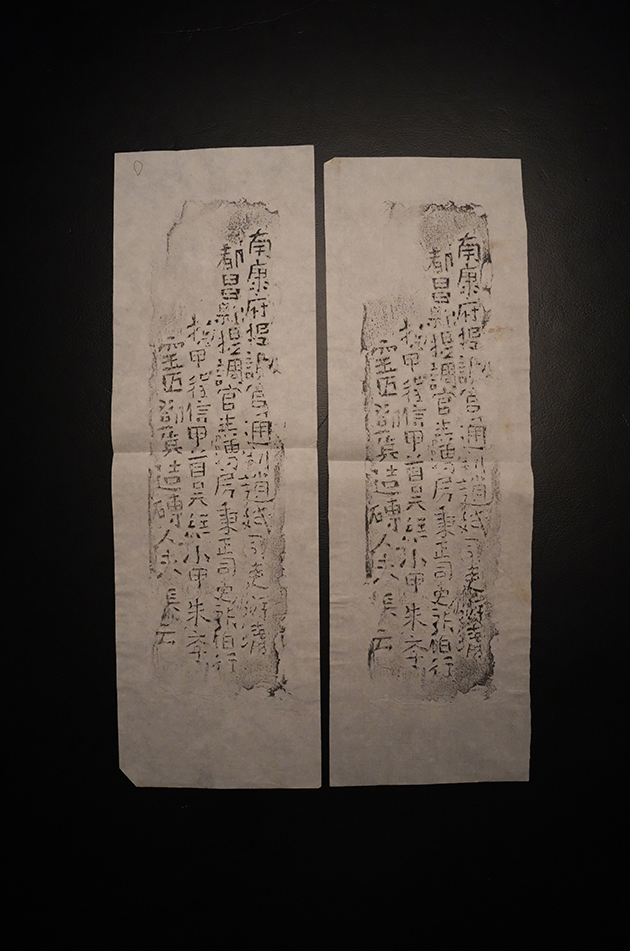 南康府提調官通判趙斌司吏游清
都昌縣提調官主簿房秉正司吏張伯行
甲信甲首吳小甲朱李
窑匠邵英造磚人夫長云
南康府提調官通判趙斌司吏游清
都昌縣提調官主簿房秉正司吏張伯行
甲信甲首吳小甲朱李
窑匠邵英造磚人夫長云